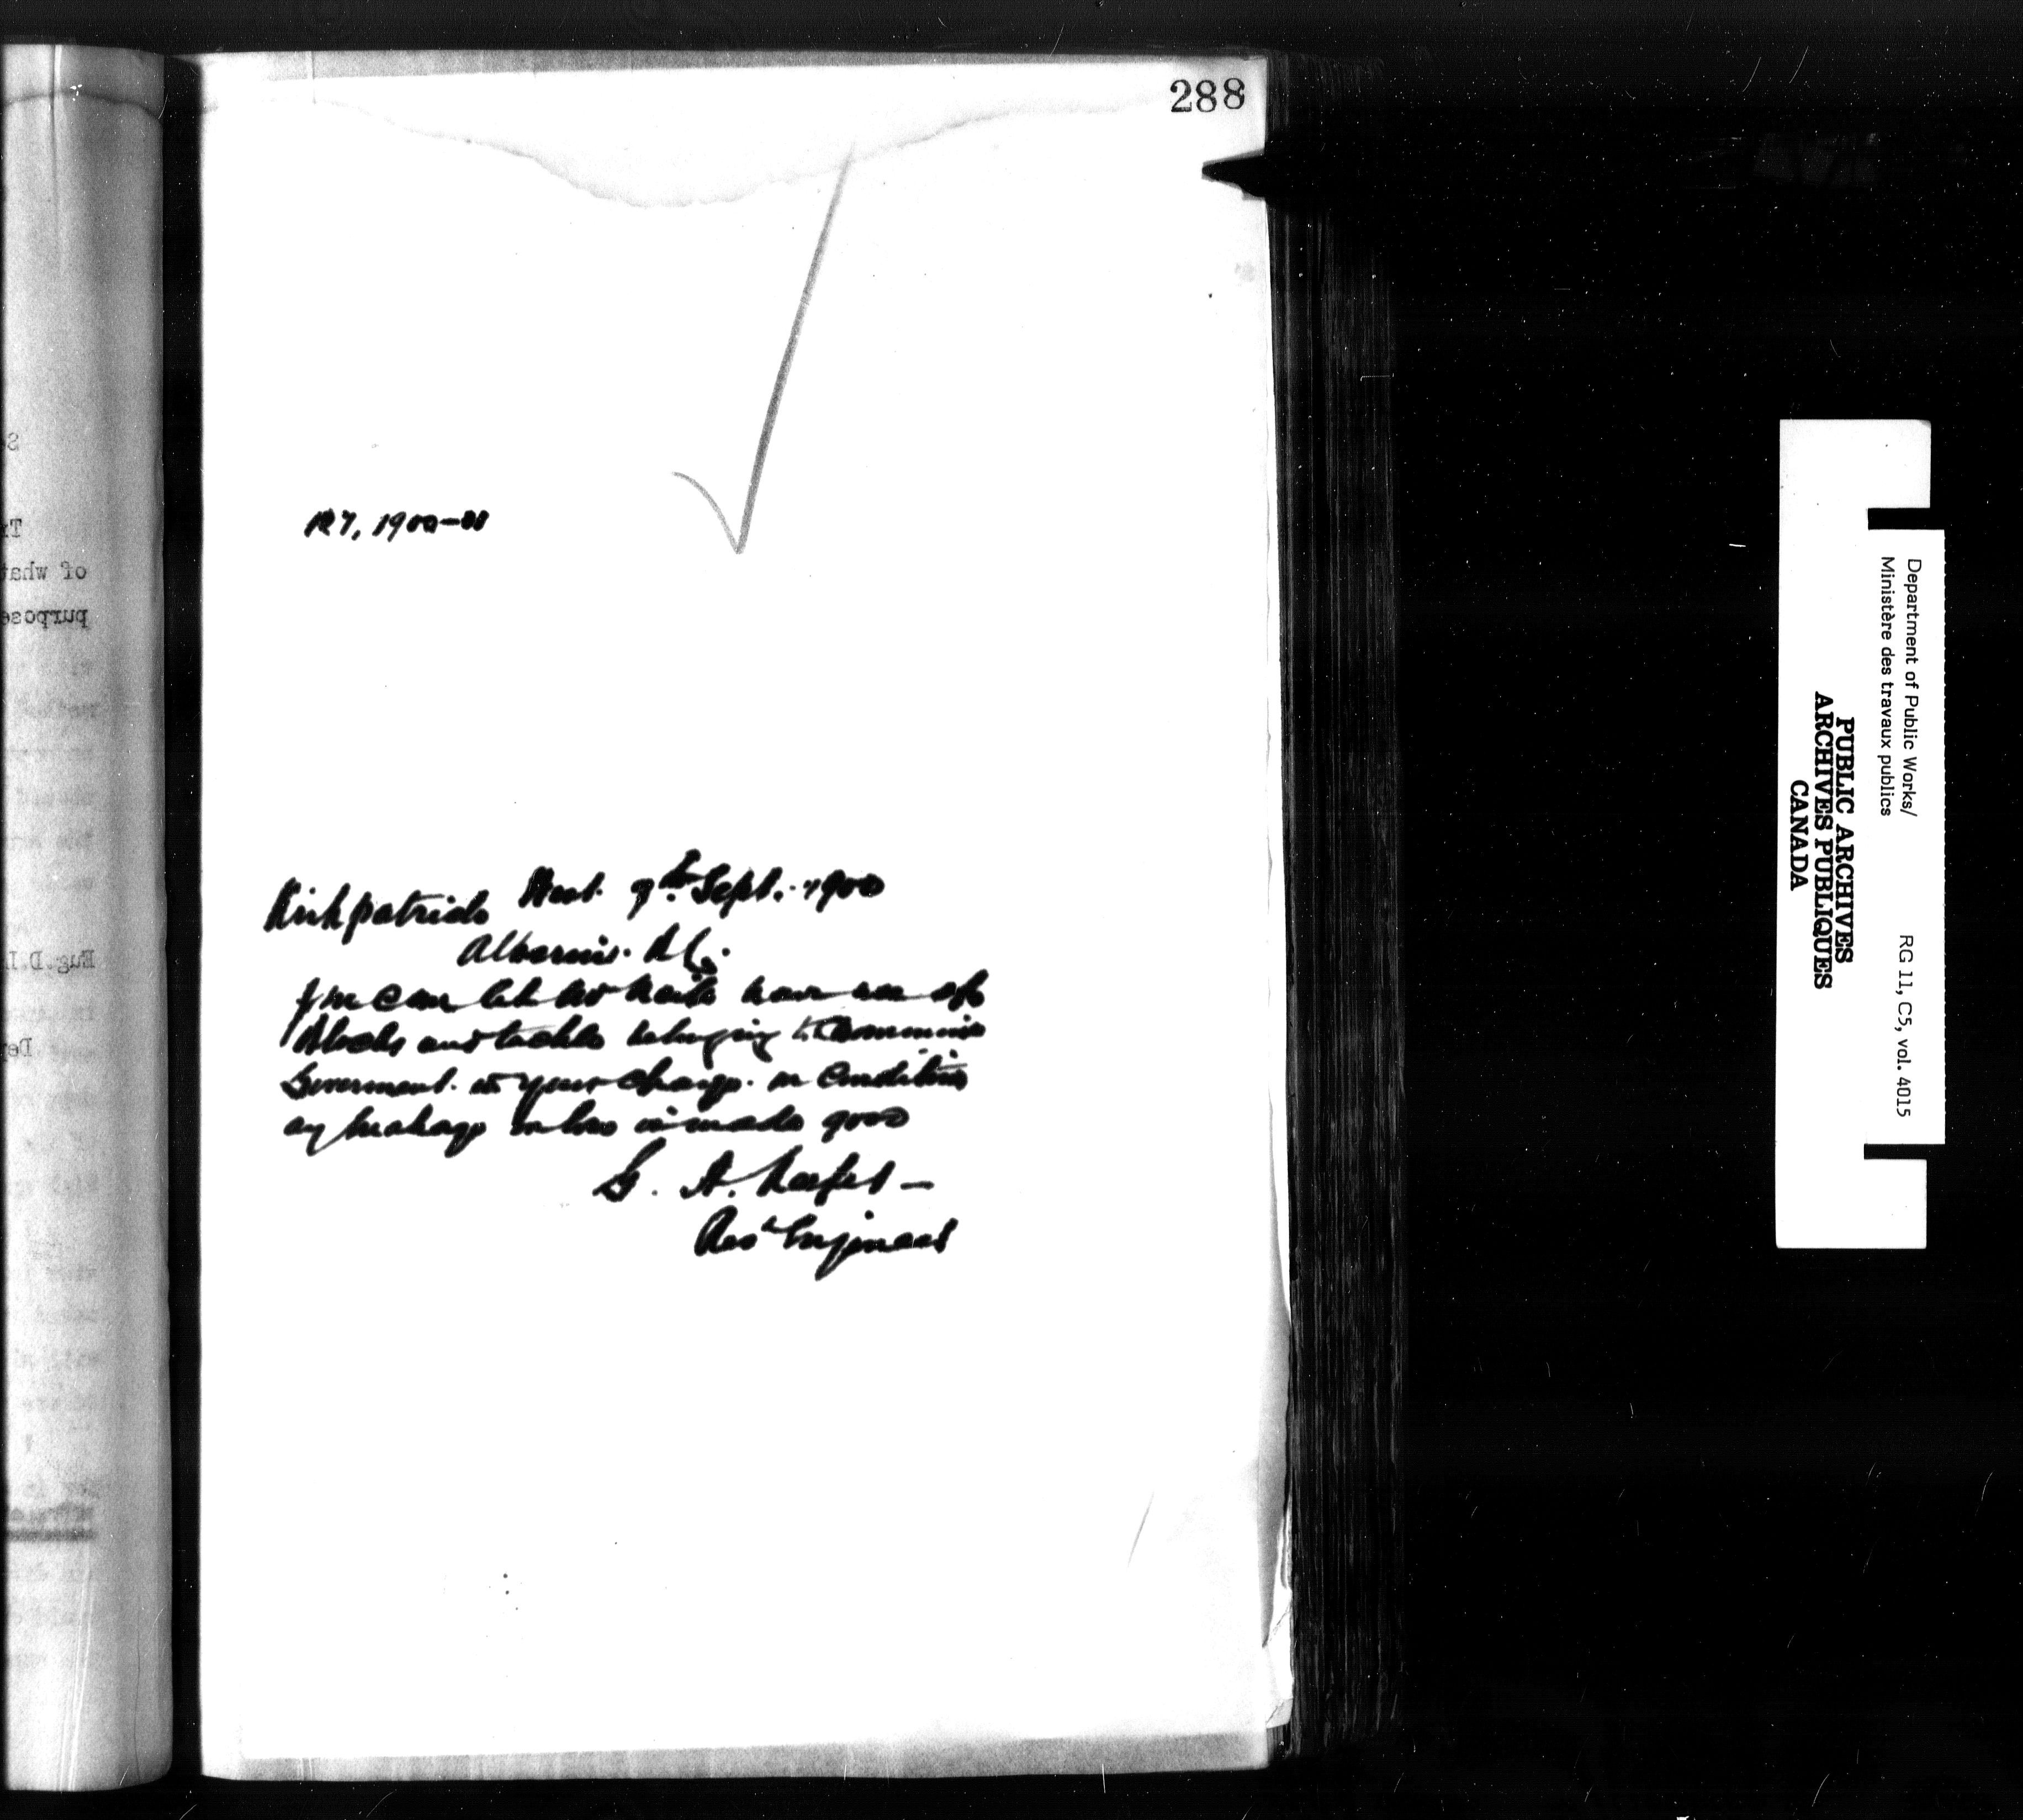 288
127, 1900-01
Kirkpatrick West. 7th Sept. 1900
Alberni. B.C.
You can let have use of
Blocks and tackle belonging to Dominion
Government in your charge. on condition
any breakage or loss is made good
G. A. Keefer
Res Engineer
of what
purpose
Eug.D.
Department of Public Works/
Ministère des travaux publics
RG 11, C5, vol. 4015
PUBLIC ARCHIVES
ARCHIVES PUBLIQUES
CANADA